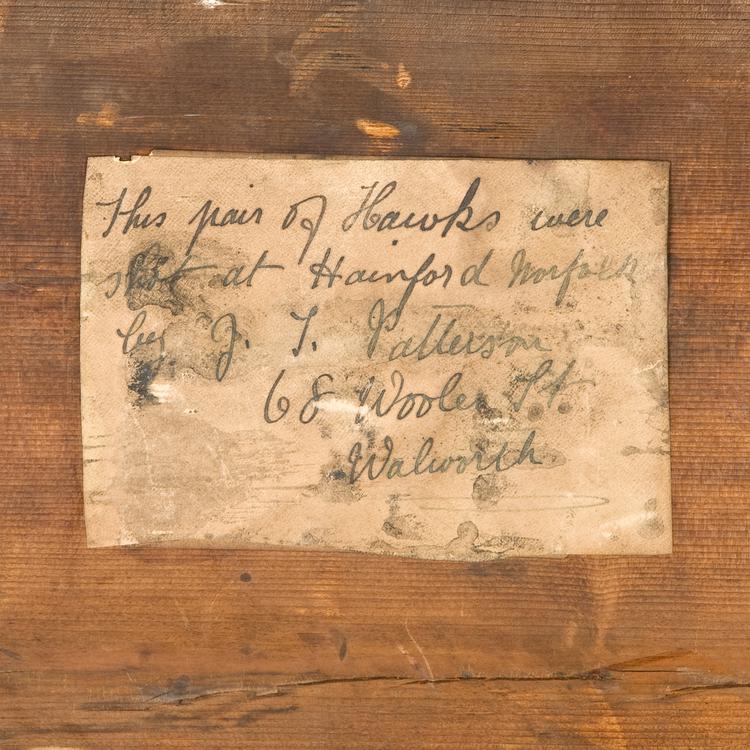 This pair of Hawks were
shot at Hainford Norfolk
by J. T. Patterson
68 Wooler St.
Walworth